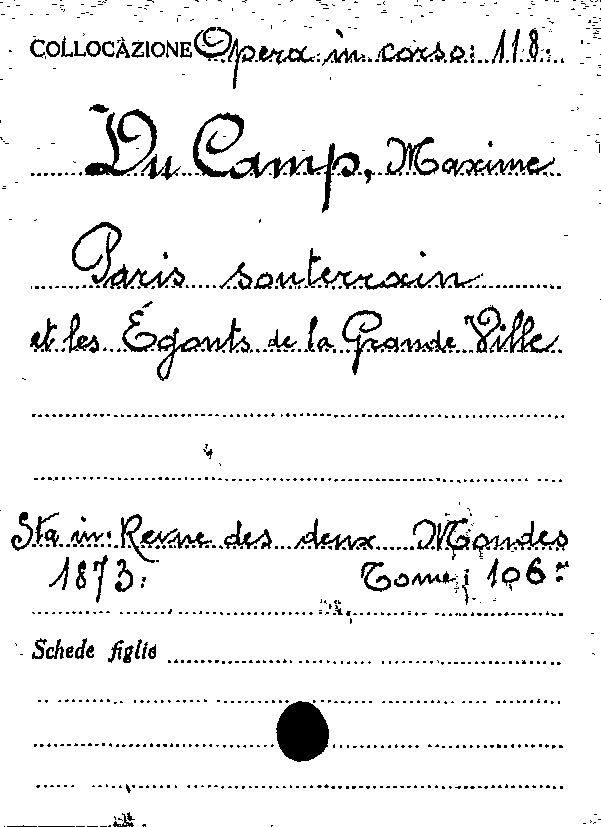 COLLOCAZIONE Opera in corso: 118.
Du Camp, Maxime
Paris souterrain
et les Égouts de la Grande Ville
Sta in: Revue des deux Mondes
1873. Tome: 106.º
Schede figlie